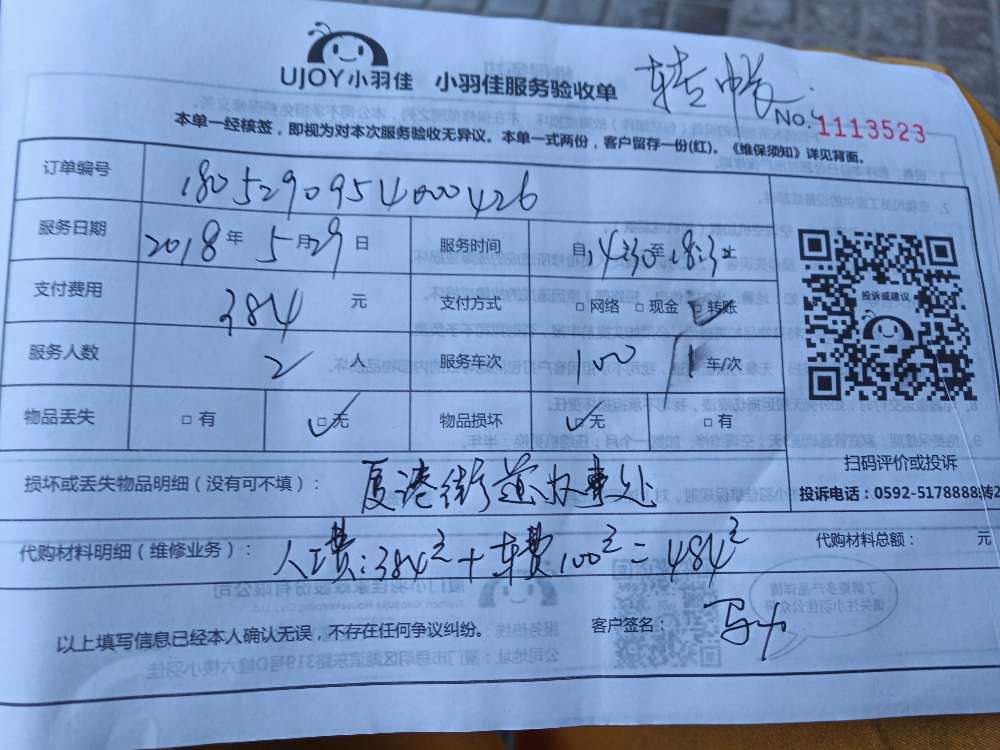 UJOY小羽佳 小羽佳服务验收单
转帐
No. 1113523
本单一经核签，即视为对本次服务验收无异议。本单一式两份，客户留存一份(红)。《维保须知》详见背面。
订单编号 1805290954000426
服务日期 2018年5月29日 服务时间 自14:30至18:30
支付费用 384元 支付方式 □网络 □现金 ☑转账
服务人数 2人 服务车次 100 1车/次
物品丢失 □有 ☑无 物品损坏 ☑无 □有
投诉或建议
扫码评价或投诉
投诉电话：0592-5178888转2
损坏或丢失物品明细（没有可不填）： 厦港街道办事处
代购材料明细（维修业务）： 人工费:384元+车费100元=484元 代购材料总额： 元
以上填写信息已经本人确认无误，不存在任何争议纠纷。 客户签名：